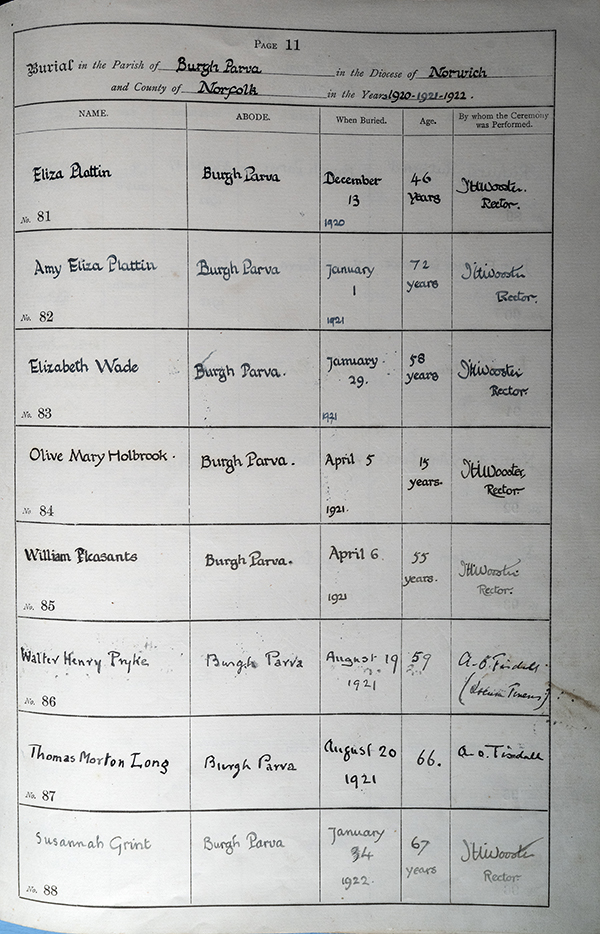 PAGE 11
Burial in the Parish of Burgh Parva in the Diocese of Norwich
and County of Norfolk in the Years 1920-1921-1922.
NAME. ABODE. When Buried. Age. By whom the Ceremony was Performed.
Eliza Plattin Burgh Parva December 13 1920 46 Years J H Wooster. Rector.
No. 81
Amy Eliza Plattin Burgh Parva January 1 1921 72 years J H Wooster Rector.
No. 82
Elizabeth Wade Burgh Parva. January. 29. 1921 58 years J H Wooster Rector.
No. 83
Olive Mary Holbrook. Burgh Parva. April 5 1921. 15 years. J H Wooster, Rector.
No. 84
William Pleasants Burgh Parva. April 6 1921 55 years. J H Wooster Rector.
No. 85
Walter Henry Pryke Burgh Parva August 19 1921 59 A. O. Tisdall. (Locum Tenens)
No. 86
Thomas Morton Long Burgh Parva August 20 1921 66. A. O. Tisdall
No. 87
Susannah Grint Burgh Parva January 1922. 67 years J H Wooster Rector
No. 88